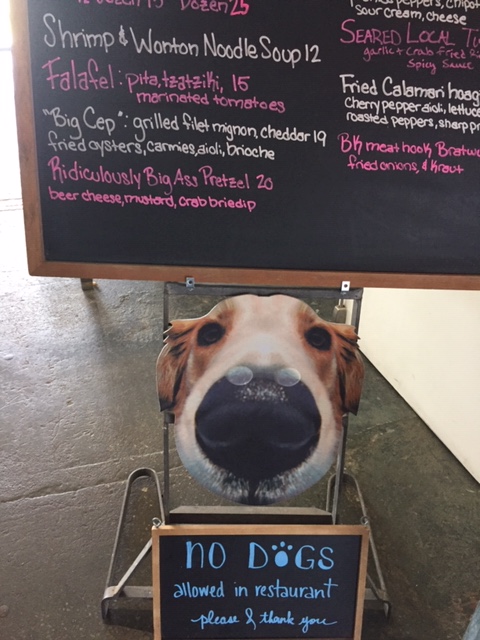 dozen 15 Dozen 25
Shrimp & Wonton Noodle Soup 12
Falafel: pita, tzatziki, 15
marinated tomatoes
"Big Cep": grilled filet mignon, cheddar 19
fried oysters, carmies, aioli, brioche
Ridiculously Big Ass Pretzel 20
beer cheese, mustard, crab brie dip
peppers, chipot
sour cream, cheese
SEARED LOCAL Tu
garlic + crab fried
Spicy Sauce
Fried Calamari hoag
cherry pepper aioli, lettuc
roasted peppers, sharp pr
BK meat hook Bratwu
fried onions, & kraut
NO DOGS
allowed in restaurant
please & thank you